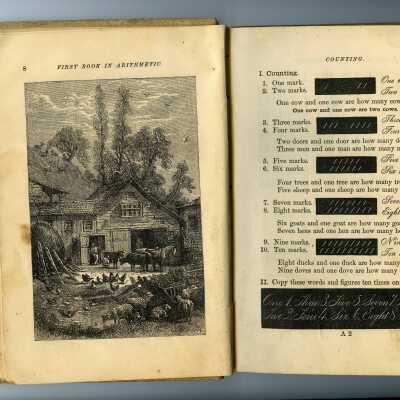 8 FIRST BOOK IN ARITHMETIC.
COUNTING.
I. Counting.
1. One mark. One
2. Two marks. Two
One cow and one cow are how many cow
One cow and one cow are two cows.
3. Three marks. Thre
4. Four marks. Four
Two doors and one door are how many do
Three men and one man are how many
5. Five marks. Five
6. Six marks. Six
Four trees and one tree are how many tre
Five sheep and one sheep are how many
7. Seven marks. Seve
8. Eight marks. Eight
Six goats and one goat are how many goa
Seven hens and one hen are how many
9. Nine marks. Nin
10. Ten marks. Ten
Eight ducks and one duck are how many
Nine doves and one dove are how many
II. Copy these words and figures ten times on
One 1, Three 3, Five 5, Seven 7,
Two 2, Four 4, Six 6, Eight 8
A 2